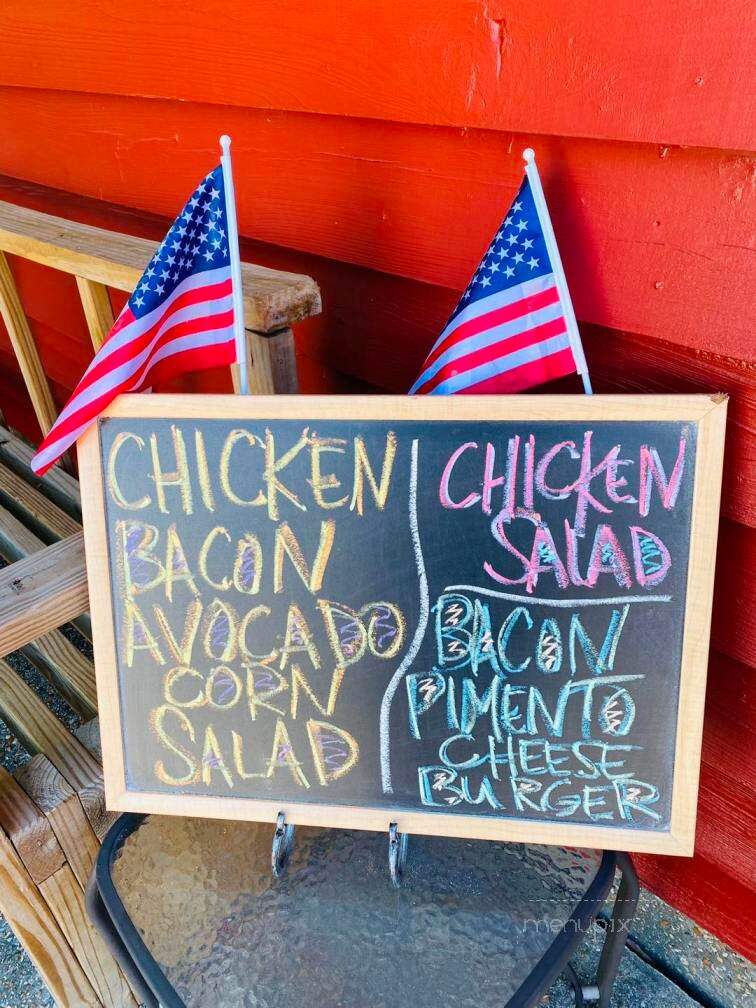 CHICKEN
BACON
AVOCADO
CORN
SALAD
CHICKEN
SALAD
BACON
PIMENTO
CHEESE
BURGER
menupix